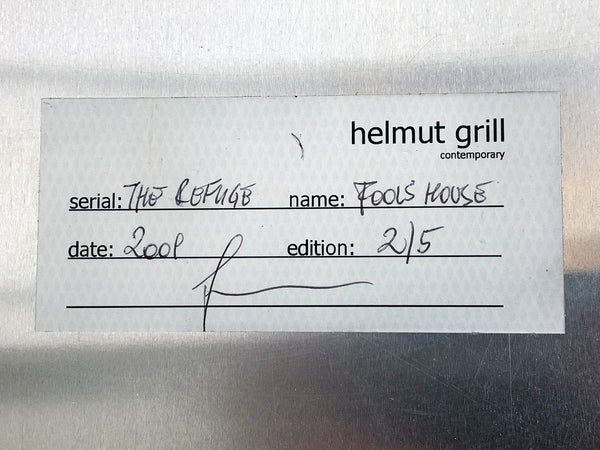 helmut grill
contemporary
serial: THE REFUGE name: FOOLS' HOUSE
date: 2009 edition: 2/5